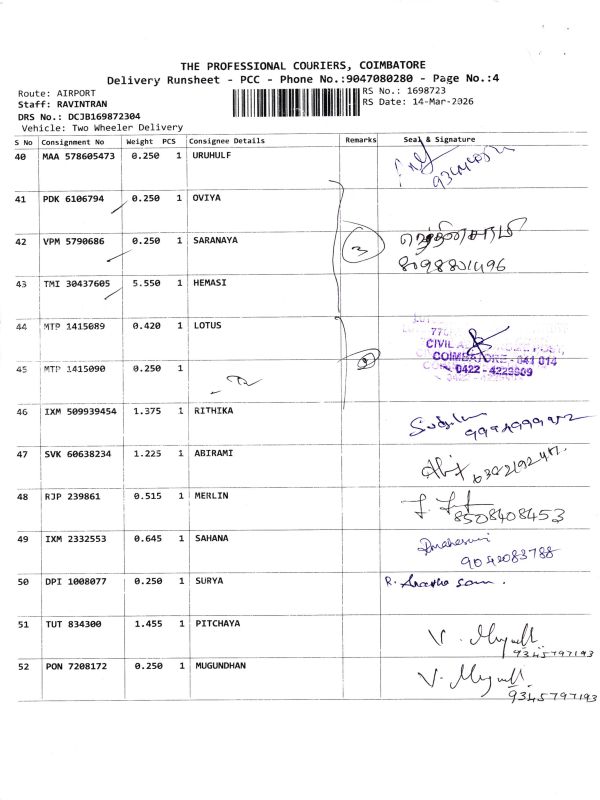 THE PROFESSIONAL COURIERS, COIMBATORE
Delivery Runsheet - PCC - Phone No.:9047080280 - Page No.:4
Route: AIRPORT
RS No.: 1698723
Staff: RAVINTRAN
RS Date: 14-Mar-2026
DRS No.: DCJB169872304
Vehicle: Two Wheeler Delivery
S No Consignment No Weight PCS Consignee Details Remarks Seal & Signature
40 MAA 578605473 0.250 1 URUHULF
41 PDK 6106794 0.250 1 OVIYA
42 VPM 5790686 0.250 1 SARANAYA 3
8098801496
43 TMI 30437605 5.550 1 HEMASI
44 MTP 1415089 0.420 1 LOTUS
CIVIL
COIMBATORE - 641 014
0422 - 4229609
45 MTP 1415090 0.250 1
46 IXM 509939454 1.375 1 RITHIKA
47 SVK 60638234 1.225 1 ABIRAMI
48 RJP 239861 0.515 1 MERLIN
8508408453
49 IXM 2332553 0.645 1 SAHANA
9042083788
50 DPI 1008077 0.250 1 SURYA
51 TUT 834300 1.455 1 PITCHAYA
9345797193
52 PON 7208172 0.250 1 MUGUNDHAN
9345797193